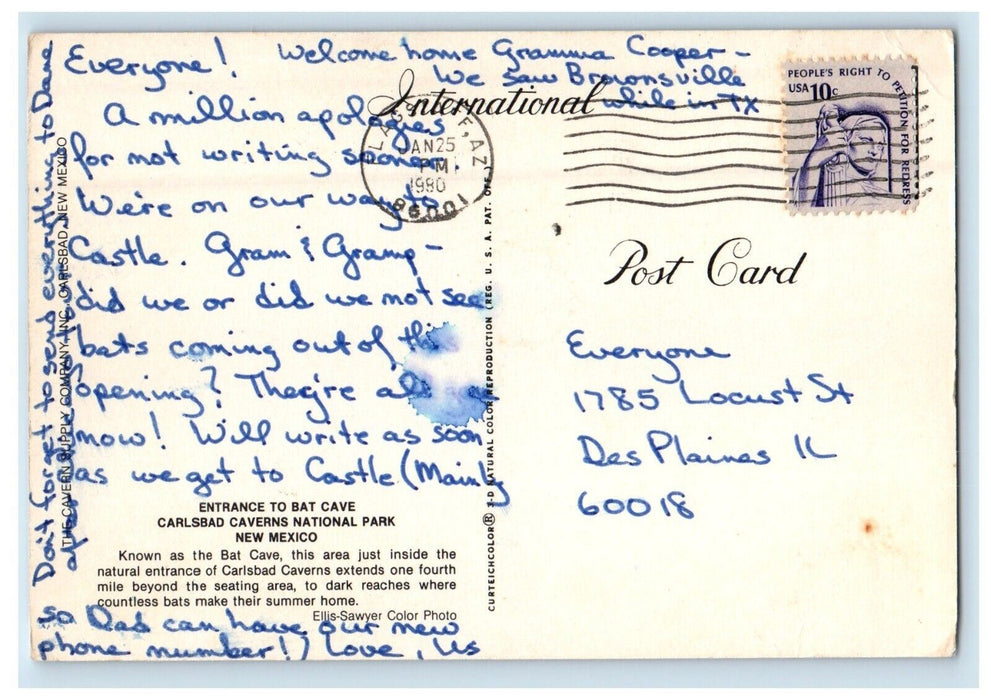 Everyone! Welcome home Gramma Cooper -
We saw Brownsville
while in TX
A million apologies
for not writing sooner.
We're on our way to
Castle. Gram & Gramp -
did we or did we not see
bats coming out of this
opening? They're all
now! Will write as soon
as we get to Castle (Mainly
so Dad can have our new
phone number!) Love, Us
Don't forget to send everything to Dave
after
THE CAVERN SUPPLY COMPANY, INC. CARLSBAD, NEW MEXICO
ENTRANCE TO BAT CAVE
CARLSBAD CAVERNS NATIONAL PARK
NEW MEXICO
Known as the Bat Cave, this area just inside the
natural entrance of Carlsbad Caverns extends one fourth
mile beyond the seating area, to dark reaches where
countless bats make their summer home.
Ellis-Sawyer Color Photo
CURTEICHCOLOR® 3-D NATURAL COLOR REPRODUCTION (REG. U. S. A. PAT. OFF.)
International
Post Card
AZ
JAN 25
PM
1980
PEOPLE'S RIGHT TO PETITION FOR REDRESS
USA 10c
Everyone
1785 Locust St
Des Plaines IL
60018